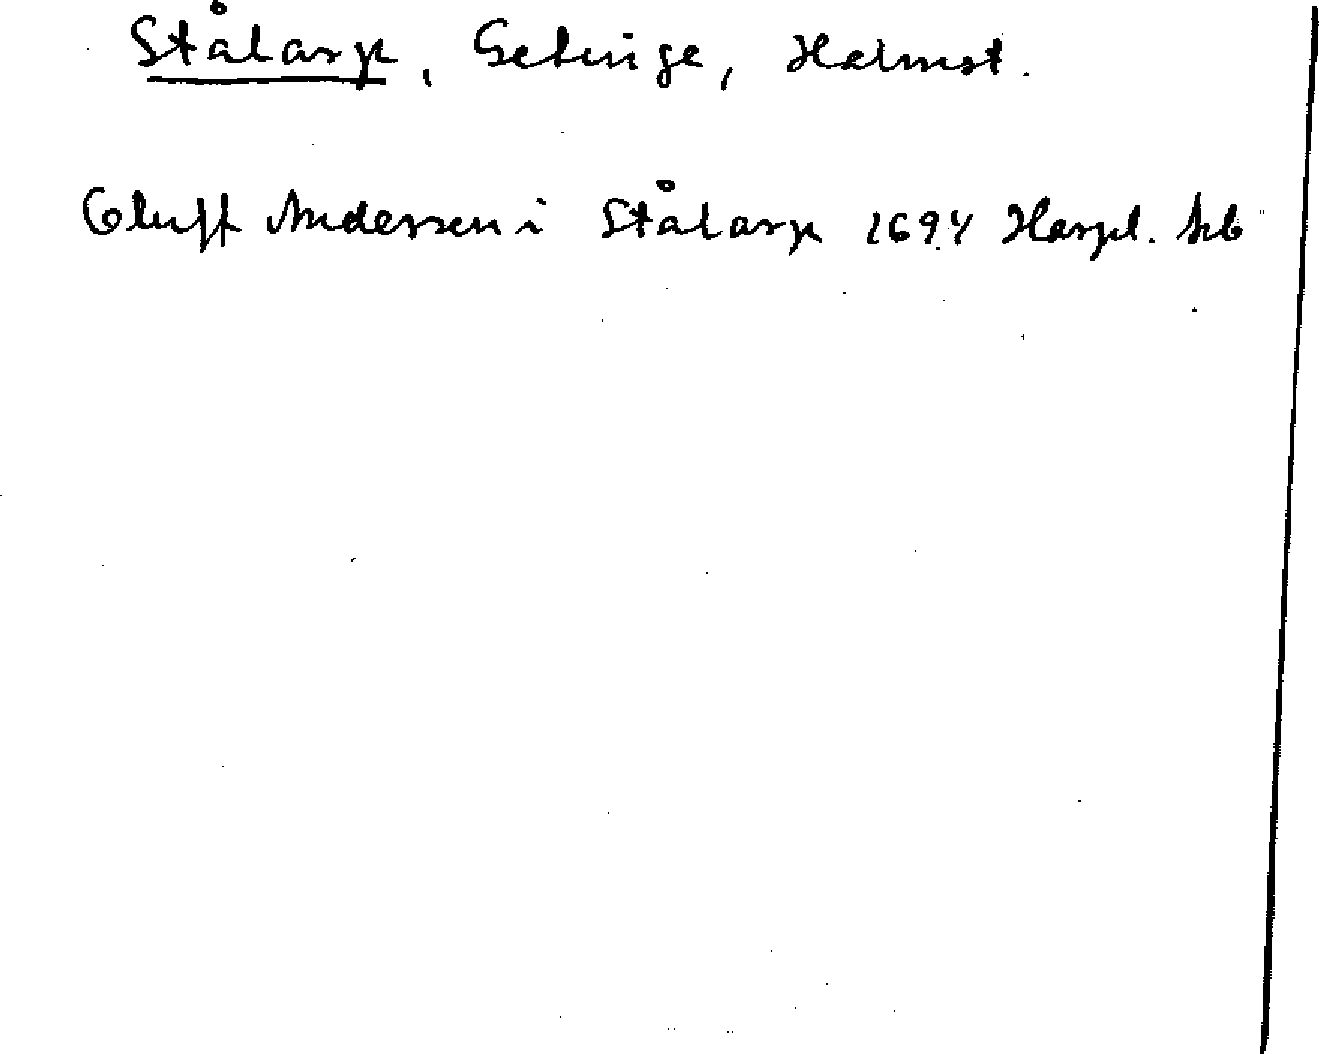 Stålarp, Getinge, Halmst.
Oluff Anderssen i Stålarp 1694 Harpl. kb